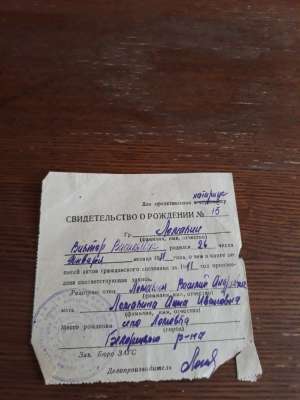 нотариус
Для предъявления в
СВИДЕТЕЛЬСТВО О РОЖДЕНИИ № 15
Гр. Лемакин
(фамилия, имя, отчество)
Виктор родился 26 числа
января месяца г., о чем в книге за-
писей актов гражданского состояния за г. произве-
дена соответствующая запись.
Родители: отец Лемакин Василий
(фамилия, имя, отчество)
мать Лемакина Анна Ивановна
(фамилия, имя, отчество)
Место рождения село
(город)
р-на
Зав. Бюро ЗАГС
Делопроизводитель